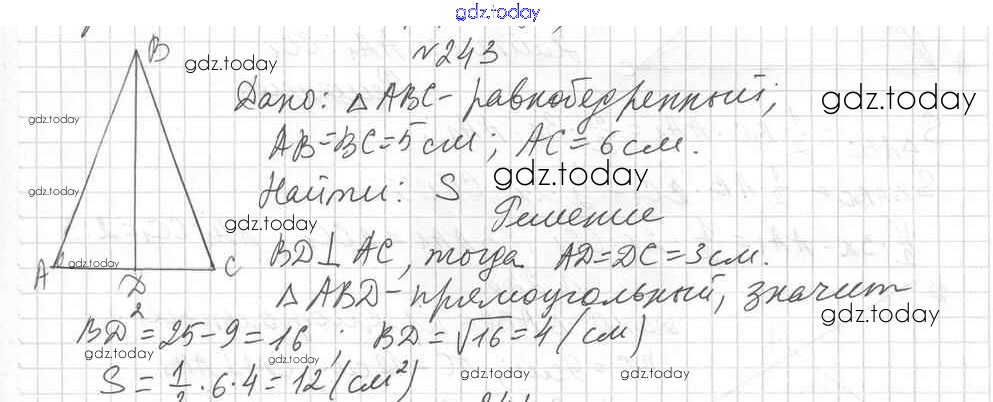 gdz.today
№243
B gdz.today
Дано: △ABC - равнобедренный; gdz.today
gdz.today
AB=BC=5 см; AC=6 см.
Найти: S gdz.today
gdz.today gdz.today
Решение
BD⊥AC, тогда AD=DC=3 см.
A gdz.today C
D
△ABD - прямоугольный, значит
gdz.today
BD²=25-9=16; BD=√16=4 (см)
gdz.today gdz.today
S=1/2·6·4=12 (см²)
gdz.today gdz.today